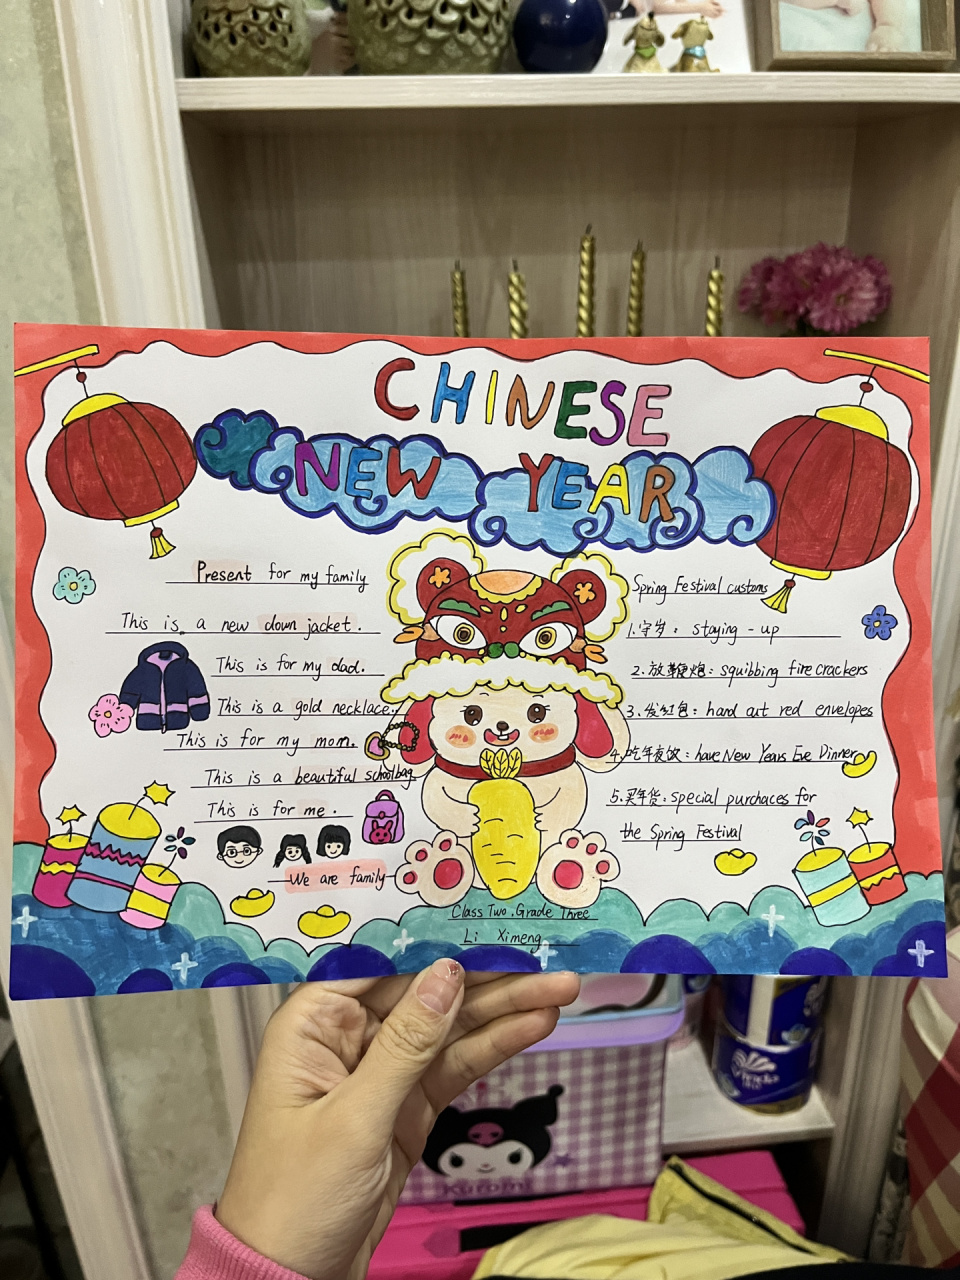 CHINESE
NEW YEAR
Present for my family
This is a new down jacket.
This is for my dad.
This is a gold necklace.
This is for my mom.
This is a beautiful schoolbag
This is for me.
We are family
Spring Festival customs
1.守岁: staying-up
2.放鞭炮: squibbing firecrackers
3.发红包: hand out red envelopes
4.吃年夜饭: have New Years Eve Dinner
5.买年货: special purchaces for
the Spring Festival
Class Two. Grade Three
Li Ximeng
Vinda
Kuromi